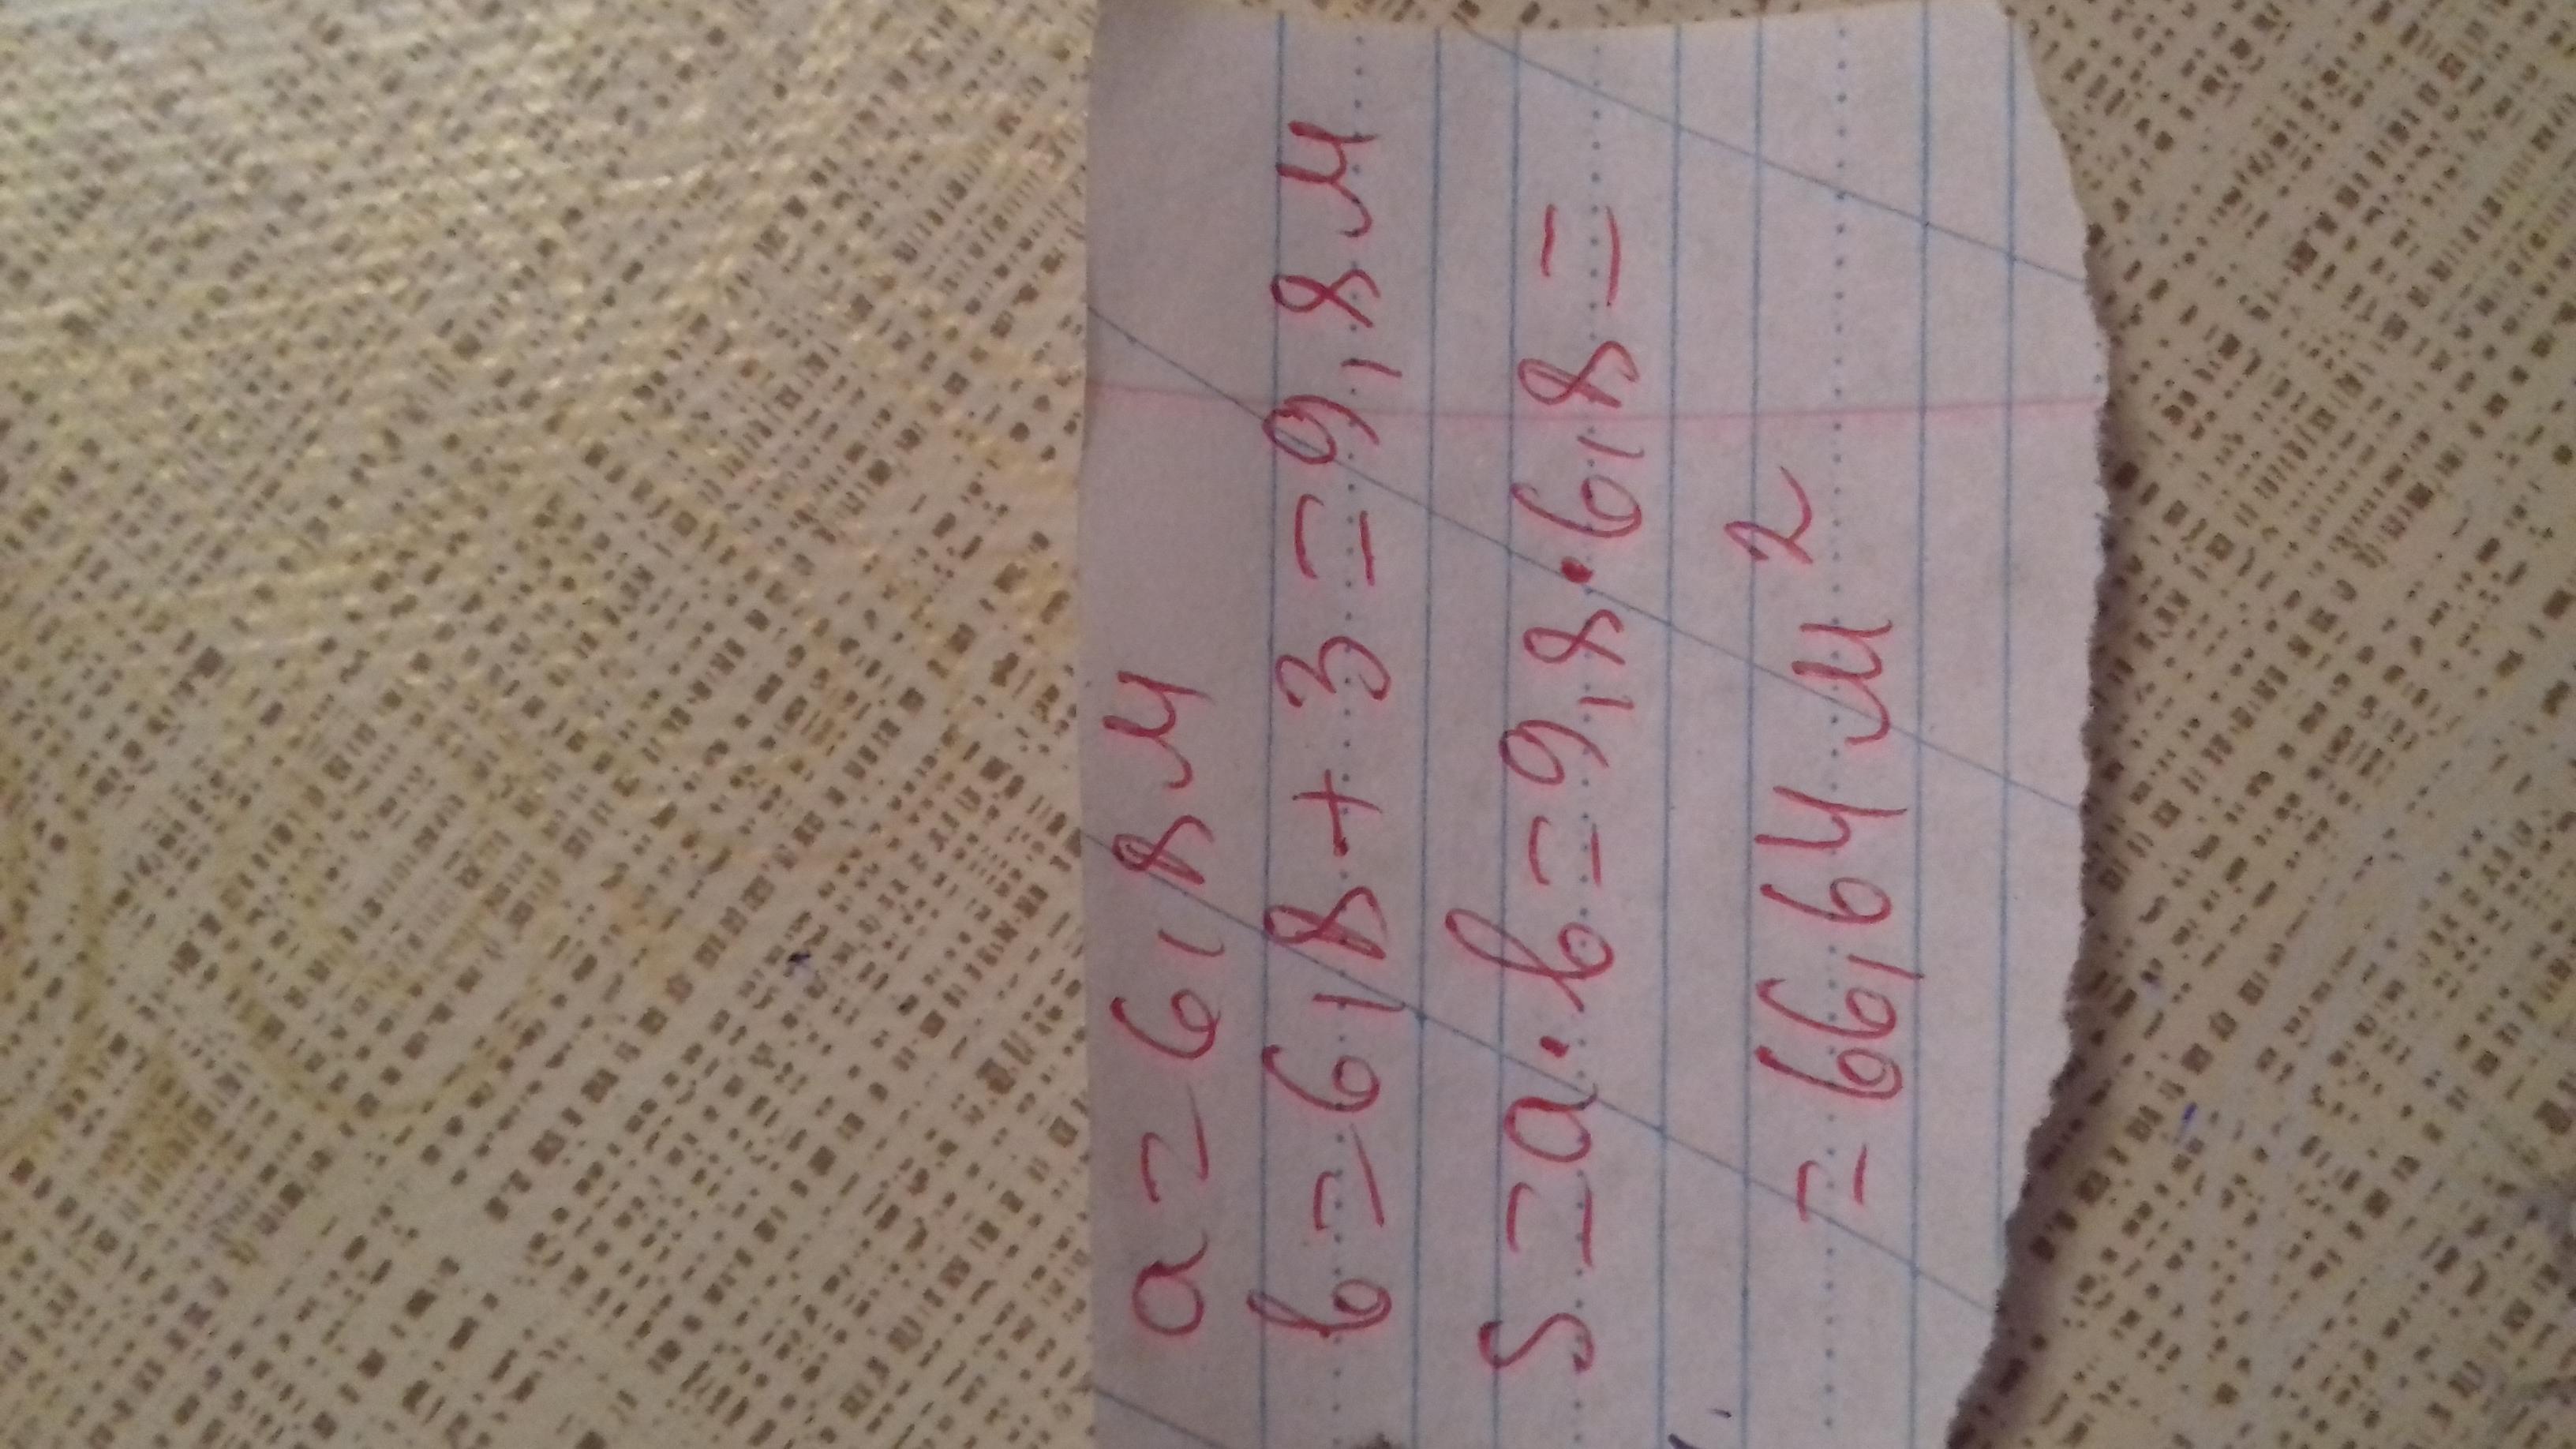 a = 6,8 м
b = 6,8 + 3 = 9,8 м
S = a · b = 9,8 · 6,8 =
= 66,64 м²